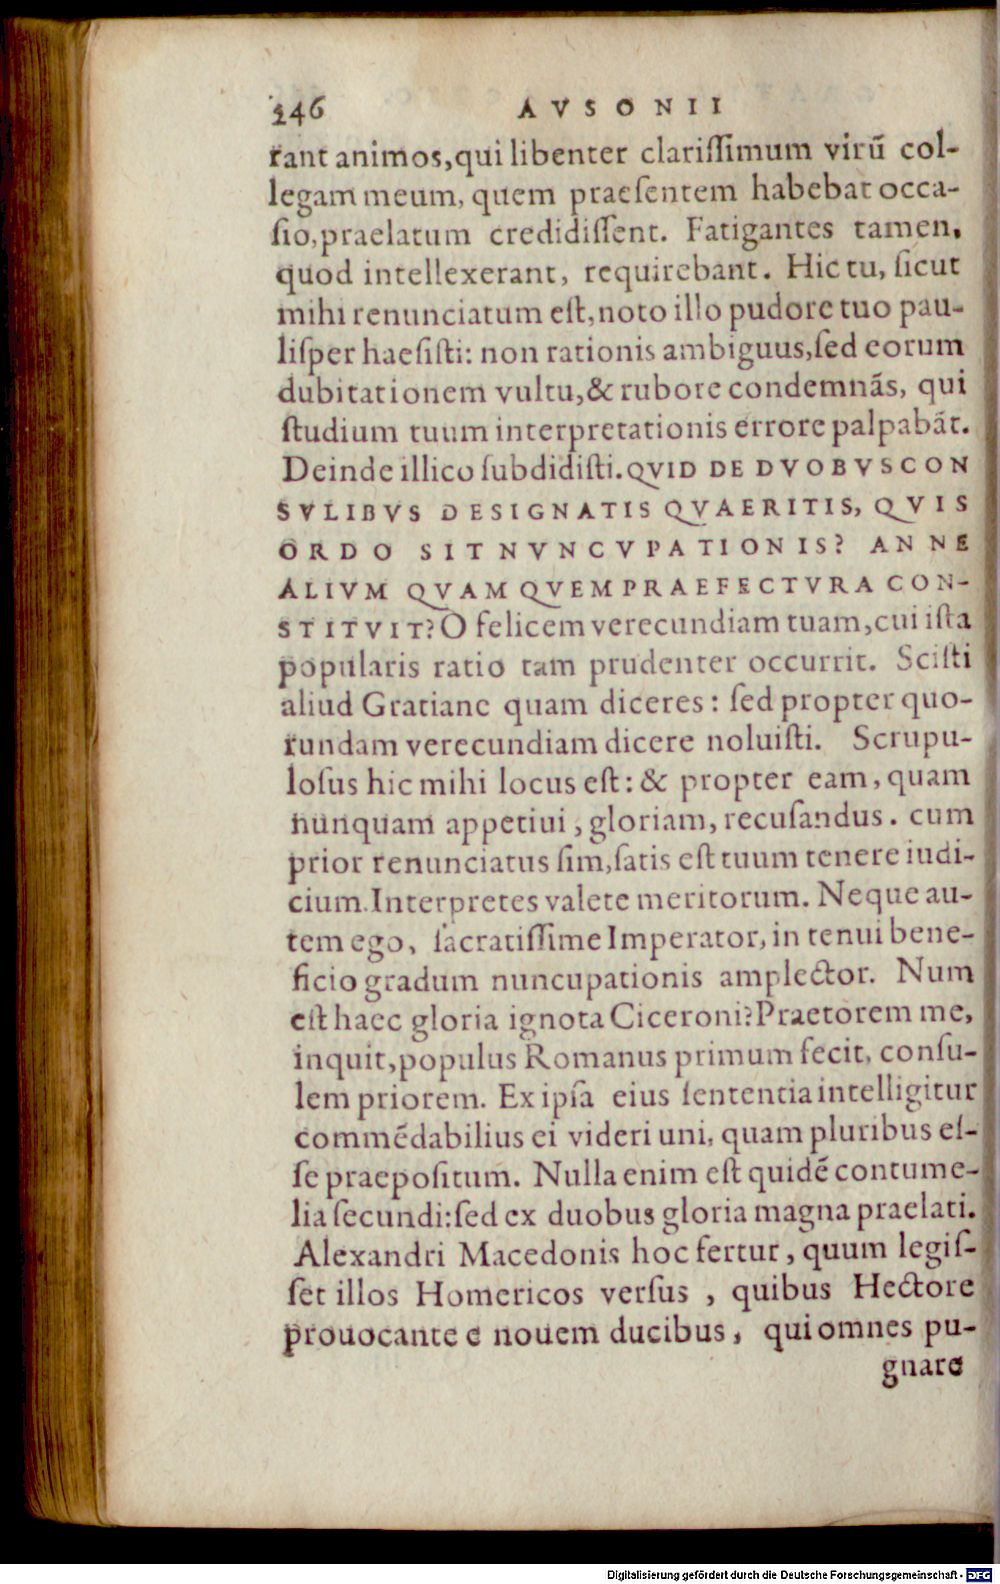 246 AVSONII
rant animos,qui libenter clarissimum virũ col-
legam meum, quem praesentem habebat occa-
sio,praelatum credidissent. Fatigantes tamen,
quod intellexerant, requirebant. Hic tu, sicut
mihi renunciatum est,noto illo pudore tuo pau-
lisper haesisti: non rationis ambiguus,sed eorum
dubitationem vultu,& rubore condemnãs, qui
studium tuum interpretationis errore palpabãt.
Deinde illico subdidisti.QVID DE DVOBVS CON
SVLIBVS DESIGNATIS QVAERITIS, QVIS
ORDO SIT NVNCVPATIONIS? AN NE
ALIVM QVAM QVEM PRAEFECTVRA CON-
STITVIT?O felicem verecundiam tuam,cui ista
popularis ratio tam prudenter occurrit. Scisti
aliud Gratiane quam diceres : sed propter quo-
rundam verecundiam dicere noluisti. Scrupu-
losus hic mihi locus est: & propter eam, quam
nunquam appetiui, gloriam, recusandus. cum
prior renunciatus sim,satis est tuum tenere iudi-
cium.Interpretes valete meritorum. Neque au-
tem ego, sacratissime Imperator, in tenui bene-
ficio gradum nuncupationis amplector. Num
est haec gloria ignota Ciceroni?Praetorem me,
inquit,populus Romanus primum fecit, consu-
lem priorem. Ex ipsa eius sententia intelligitur
commẽdabilius ei videri uni, quam pluribus es-
se praepositum. Nulla enim est quidẽ contume-
lia secundi:sed ex duobus gloria magna praelati.
Alexandri Macedonis hoc fertur, quum legis-
set illos Homericos versus , quibus Hectore
prouocante e nouem ducibus, qui omnes pu-
gnare
Digitalisierung gefördert durch die Deutsche Forschungsgemeinschaft - DFG